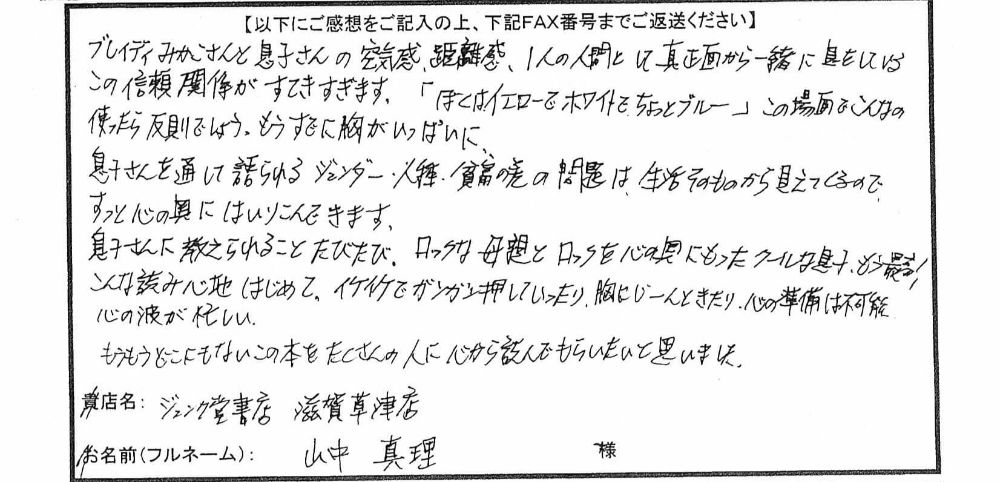 【以下にご感想をご記入の上、下記FAX番号までご返送ください】
ブレイディみかこさんと息子さんの空気感、距離感、1人の人間として真正面から一緒に息をしている
この信頼関係がすてきすぎます。「ぼくはイエローでホワイトでちょっとブルー」この場面でこんなの
使ったら反則でしょう。もうすでに胸がいっぱいに、
息子さんを通して語られるジェンダー・人種・貧富の差の問題は、生活そのものから見えてくるので、
すっと心の奥にはいりこんできます。
息子さんに教えられることたびたび。ロックな母親とロックを心の奥にもったクールな息子、もう最高!
こんな読み心地はじめて。イケイケでガンガン押していったり、胸にじーんときたり、心の準備は不可能
心の波が忙しい。
もうもうどこにもないこの本をたくさんの人に心から読んでもらいたいと思いました。
貴店名: ジュンク堂書店 滋賀草津店
お名前(フルネーム): 山中 真理 様